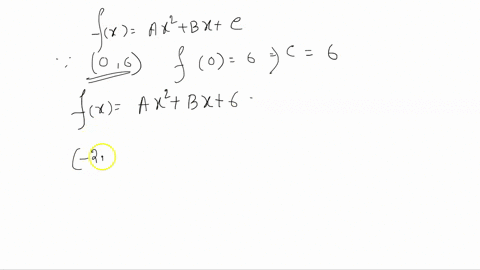 f(x) = Ax²+Bx+C
∵ (0,6) f(0)=6 ⇒ C = 6
f(x) = Ax²+Bx+6
(-2,